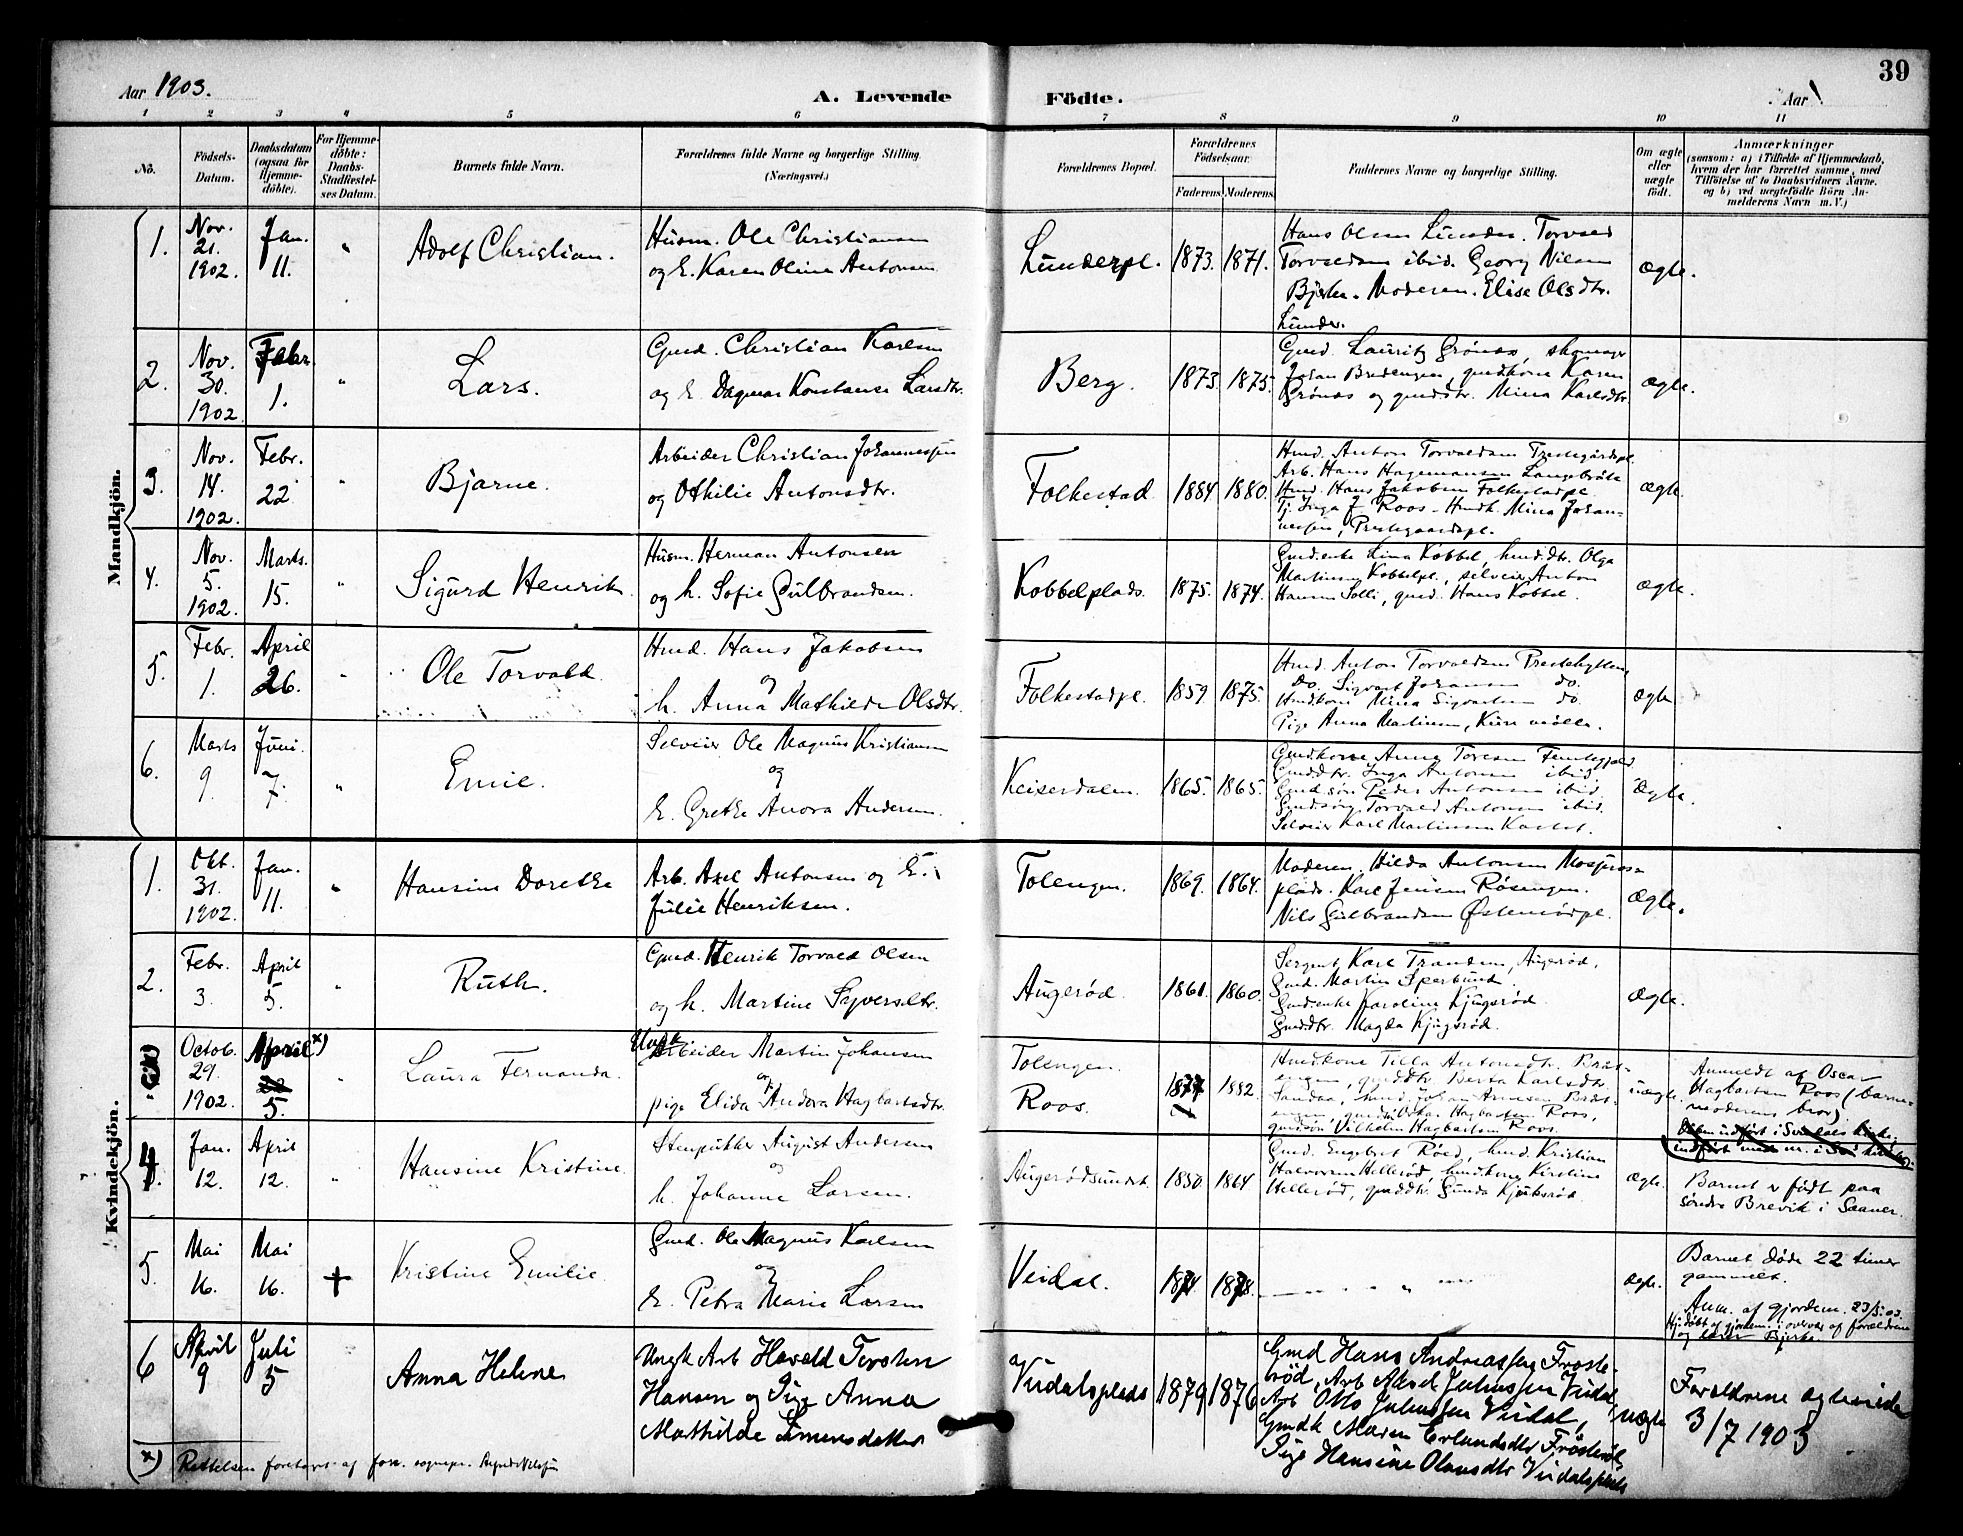 39
Aar 1903.
A. Levende Födte.
Aar
1 2 3 4 5 6 7 8 9 10 11
No.
Födsels-Datum.
Daabsdatum (ogsaa for Hjemme-döbte).
For Hjemme-döbte: Daabs-Stadfæstel-ses Datum.
Barnets fulde Navn.
Forældrenes fulde Navne og borgerlige Stilling.
(Næringsvei.)
Forældrenes Bopæl.
Forældrenes Födselsaar.
Faderens. Moderens.
Faddernes Navne og borgerlige Stilling.
Om ægte eller uægte födt.
Anmærkninger
(saasom: a) i Tilfælde af Hjemmedaab,
hvem der har forrettet samme, med
Tilföielse af to Daabsvidners Navne.
og b) ved uægtefödte Börn An-
melderens Navn m. V.)
Mandkjön.
1. Nov. 21. 1902. Jan. 11. " Adolf Christian.
Husm. Ole Christiansen
og E. Karen Oline Antonsen
Lunderpl. 1873. 1871.
Hans Olsen Lunder. Torvald
Torvaldsen ibid. Georg Nilsen
Bjerke. Moderen. Elise Olsdtr.
Lunder.
ægte.
2. Nov. 30. 1902 Febr. 1. " Lars.
Gmd. Christian Karlsen
og E. Dagmar Konstanse Larsdtr.
Berg. 1873 1875.
Gmd. Lauritz Grönas, skomager
Johan Bredengen, gmdkone Karen
Grönas og gmdsdtr. Mina Karlsdtr.
ægte.
3. Nov. 14. 1902. Febr. 22 " Bjarne.
Arbeider Christian Johannessen
og Othilie Antonsdtr.
Folkestad 1884 1880.
Hmd. Anton Torvaldsen Prestegårdspl.
Arb. Hans Hagemansen Langebråte
Hmd. Hans Jakobsen Folkestadpl.
Tj. Inga J. Roos - Hmdk. Mina Johan-
nessen, Prestegaardspl.
ægte.
4. Nov. 5. 1902. Marts. 15. " Sigurd Henrik
Husm. Herman Antonsen
og h. Sofie Gulbrandsen.
Kobbelplads. 1875. 1874.
Gmd.enke Lina Kobbel, hmd.dtr. Olga
Martinsen Kobbelpl., selveier Anton
Hansen Solli, gmd. Hans Kobbel.
ægte.
5. Febr. 1. April 26. " Ole Torvald
Hmd. Hans Jakobsen
og
h. Anna Mathilde Olsdtr.
Folkestadpl. 1859 1875.
Hmd. Anton Torvaldsen Prestehytten,
do. Sigvart Johansen do.
Hmdkone Mina Sigvartsen do.
Pige Anna Martinsen,
ægte
6. Marts 9. Juni. 7. " Emil.
Selveier Ole Magnus Kristiansen
og
E. Grethe Anora Andersen.
Keiserdalen. 1865. 1865.
Gmdkone Anna Toresen
Gmddtr. Inga Antonsen ibid.
Gmd.søn Peder Antonsen ibid.
Gmd.søn Torvald Antonsen ibid.
Selveier Karl Martinsen
Ægte.
Kvindekjön.
1. Okt. 31. 1902. Jan. 11. " Hansine Dorethe
Arb. Axel Antonsen og E.
Julie Henriksen.
Tolengen. 1869. 1864.
Moderen. Hilda Antonsen
plads. Karl Jensen Røsengen.
Nils Gulbrandsen Østenrødpl.
Ægte.
2. Febr. 3. April 5. " Ruth.
Gmd. Henrik Torvald Olsen
og h. Martine Syversdtr.
Augerød. 1861. 1860.
Sergent Karl Trandem, Augerød.
Gmd. Martin Sperbund.
Gmd.enke Karoline Kjugerød.
Gmd.dtr. Magda Kjugerød.
Ægte.
Octob. 29. 1902 April x) 5. " Laura Fernanda.
Ungk.
Arbeider Martin Johansen
og
pige Elida Andora Hagbartsdtr.
Tolengen.
Roos. 1877 1882.
Hmdkone Tilla Antonsdtr. Bråt-
engen, gmddtr. Berta Karlsdtr.
Sandaa, hmd. Johan Arnesen Bråt-
engen, gmdsøn Oskar Hagbartsen Roos,
gmdsøn Vilhelm Hagbartsen Roos.
uægte.
Anmeldt af Oscar
Hagbartsen Roos (barne-
moderens bror).
4. Jan. 12. April 12. " Hansine Kristine.
Stenhukker August Andersen
og
h. Johanne Larsen.
Augerødsundet 1850. 1864
Gmd. Engebret Røed, hmd. Kristian
Halvorsen Hellerød, hmdkone Kirstine
Hellerød, gmddtr. Gunda Kjuksrød.
ægte.
Barnet er født paa
søndre Brevik i Saaner.
5. Mai 16. Mai 16. + Kristine Emilie.
Gmd. Ole Magnus Karlsen
og
E. Petra Marie Larsen
Veidal. 1874 1878.
ægte.
Barnet døde 22 timer
gammelt.
Anm. af gjordem. 23/5.03.
Hj.døbt af gjordem. i overvær af forældrene
og lærer Bjerke
6 April 9 Juli 5 Anna Helene
Ungk Arb Harald Torsten
Hansen og Pige Anna
Mathilde Simensdatter
Veidalsplads 1879 1876
Gmd Hans Andreassen Froste-
rød, Arb Aksel Juliussen Veidal,
Arb Otto Juliussen Veidal,
Gmdk Maren Erlandsdtr Frösterød
Pige Hansine Olausdtr Veidalsplads
uægte
Foreldrene ægteviede
3/7 1903
x) Rettelsen foretat af forr. sogнepr.